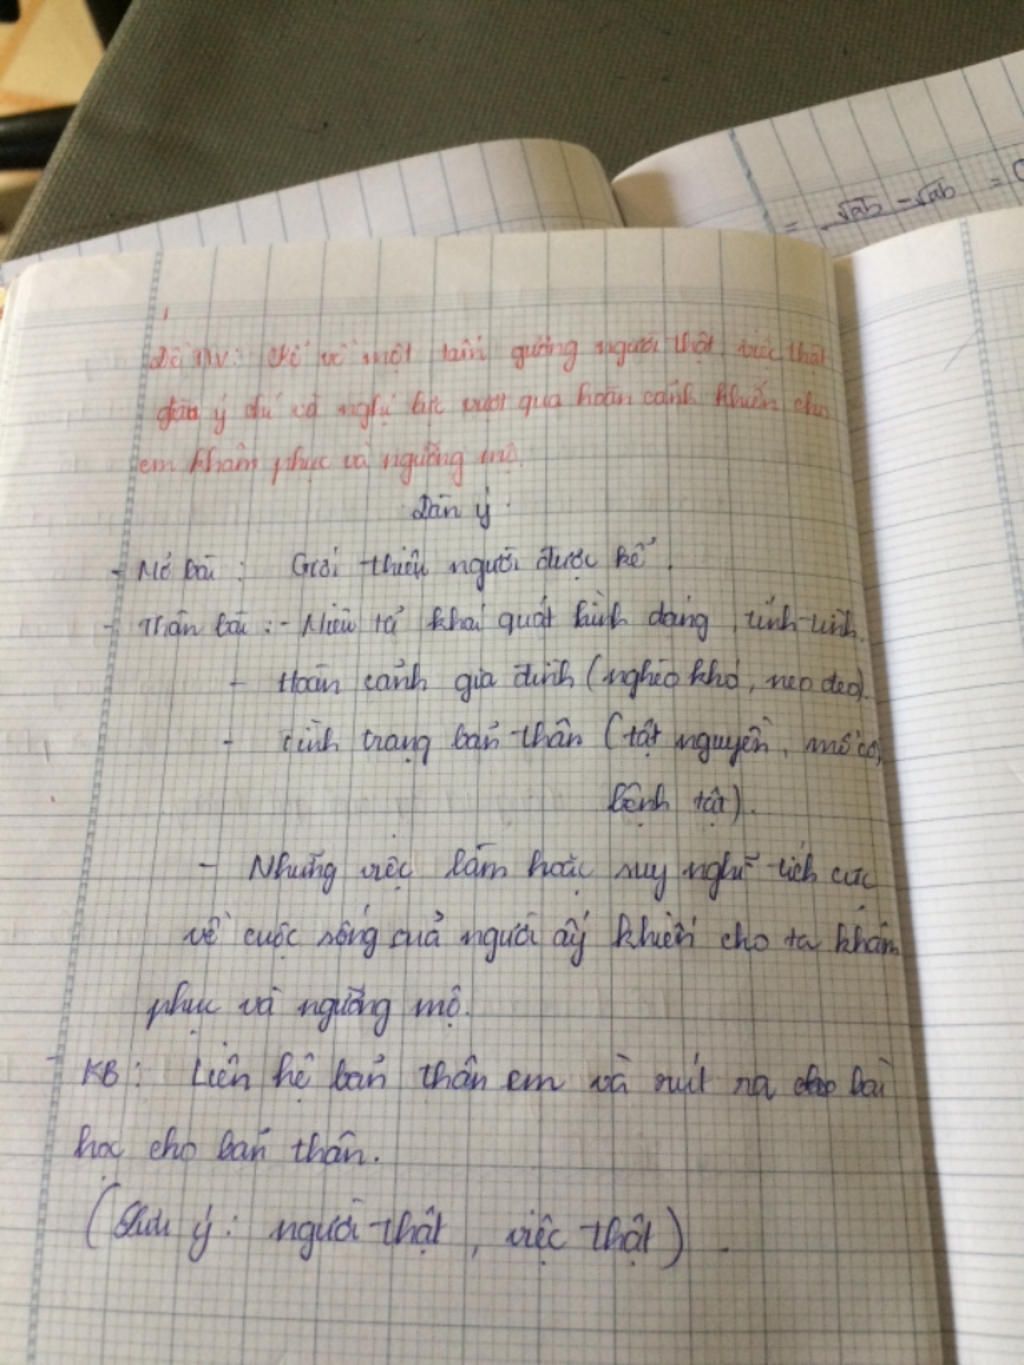 = √ab - √ab = 0
Đề NV: Kể về một tấm gương người thật, việc thật
giàu ý chí và nghị lực vượt qua hoàn cảnh khiến cho
em khâm phục và ngưỡng mộ.
Dàn ý.
- Mở bài: Giới thiệu người được kể.
- Thân bài: - Miêu tả khái quát hình dáng, tính tình.
- Hoàn cảnh gia đình (nghèo khó, neo đơn).
- Tình trạng bản thân (tật nguyền, mồ côi,
bệnh tật).
- Những việc làm hoặc suy nghĩ tích cực
về cuộc sống của người ấy khiến cho ta khâm
phục và ngưỡng mộ.
- KB: Liên hệ bản thân em và rút ra bài
học cho bản thân.
(Lưu ý: người thật, việc thật).